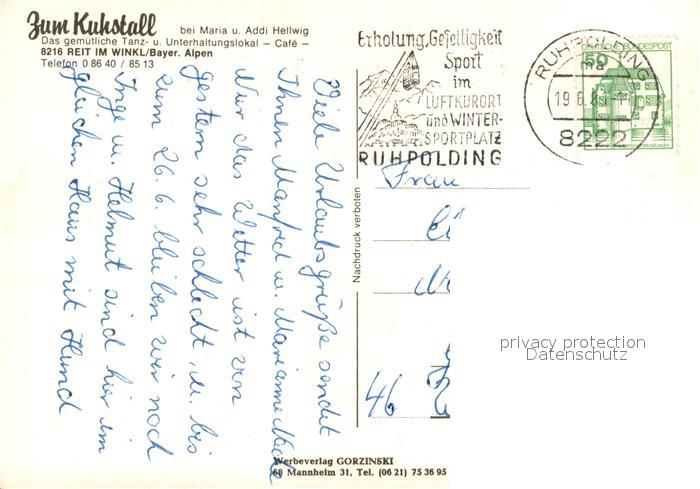 Zum Kuhstall bei Maria u. Addi Hellwig
Das gemütliche Tanz- u. Unterhaltungslokal – Café –
8216 REIT IM WINKL/Bayer. Alpen
Telefon 0 86 40 / 85 13
Viele Urlaubsgrüße sendet
Ihnen Manfred u. Marianne
Nur das Wetter ist von
gestern sehr schlecht, u. bis
zum 26.6. bleiben wir noch
Inge u. Helmut sind hier im
gleichen Haus mit Hund
Erholung, Geselligkeit
Sport
im
LUFTKURORT
und WINTER-
SPORTPLATZ
RUHPOLDING
RUHPOLDING
19.6.8
8222
DEUTSCHE BUNDESPOST
50
Nachdruck verboten
Frau
46
privacy protection
Datenschutz
Werbeverlag GORZINSKI
68 Mannheim 31, Tel. (06 21) 75 36 95